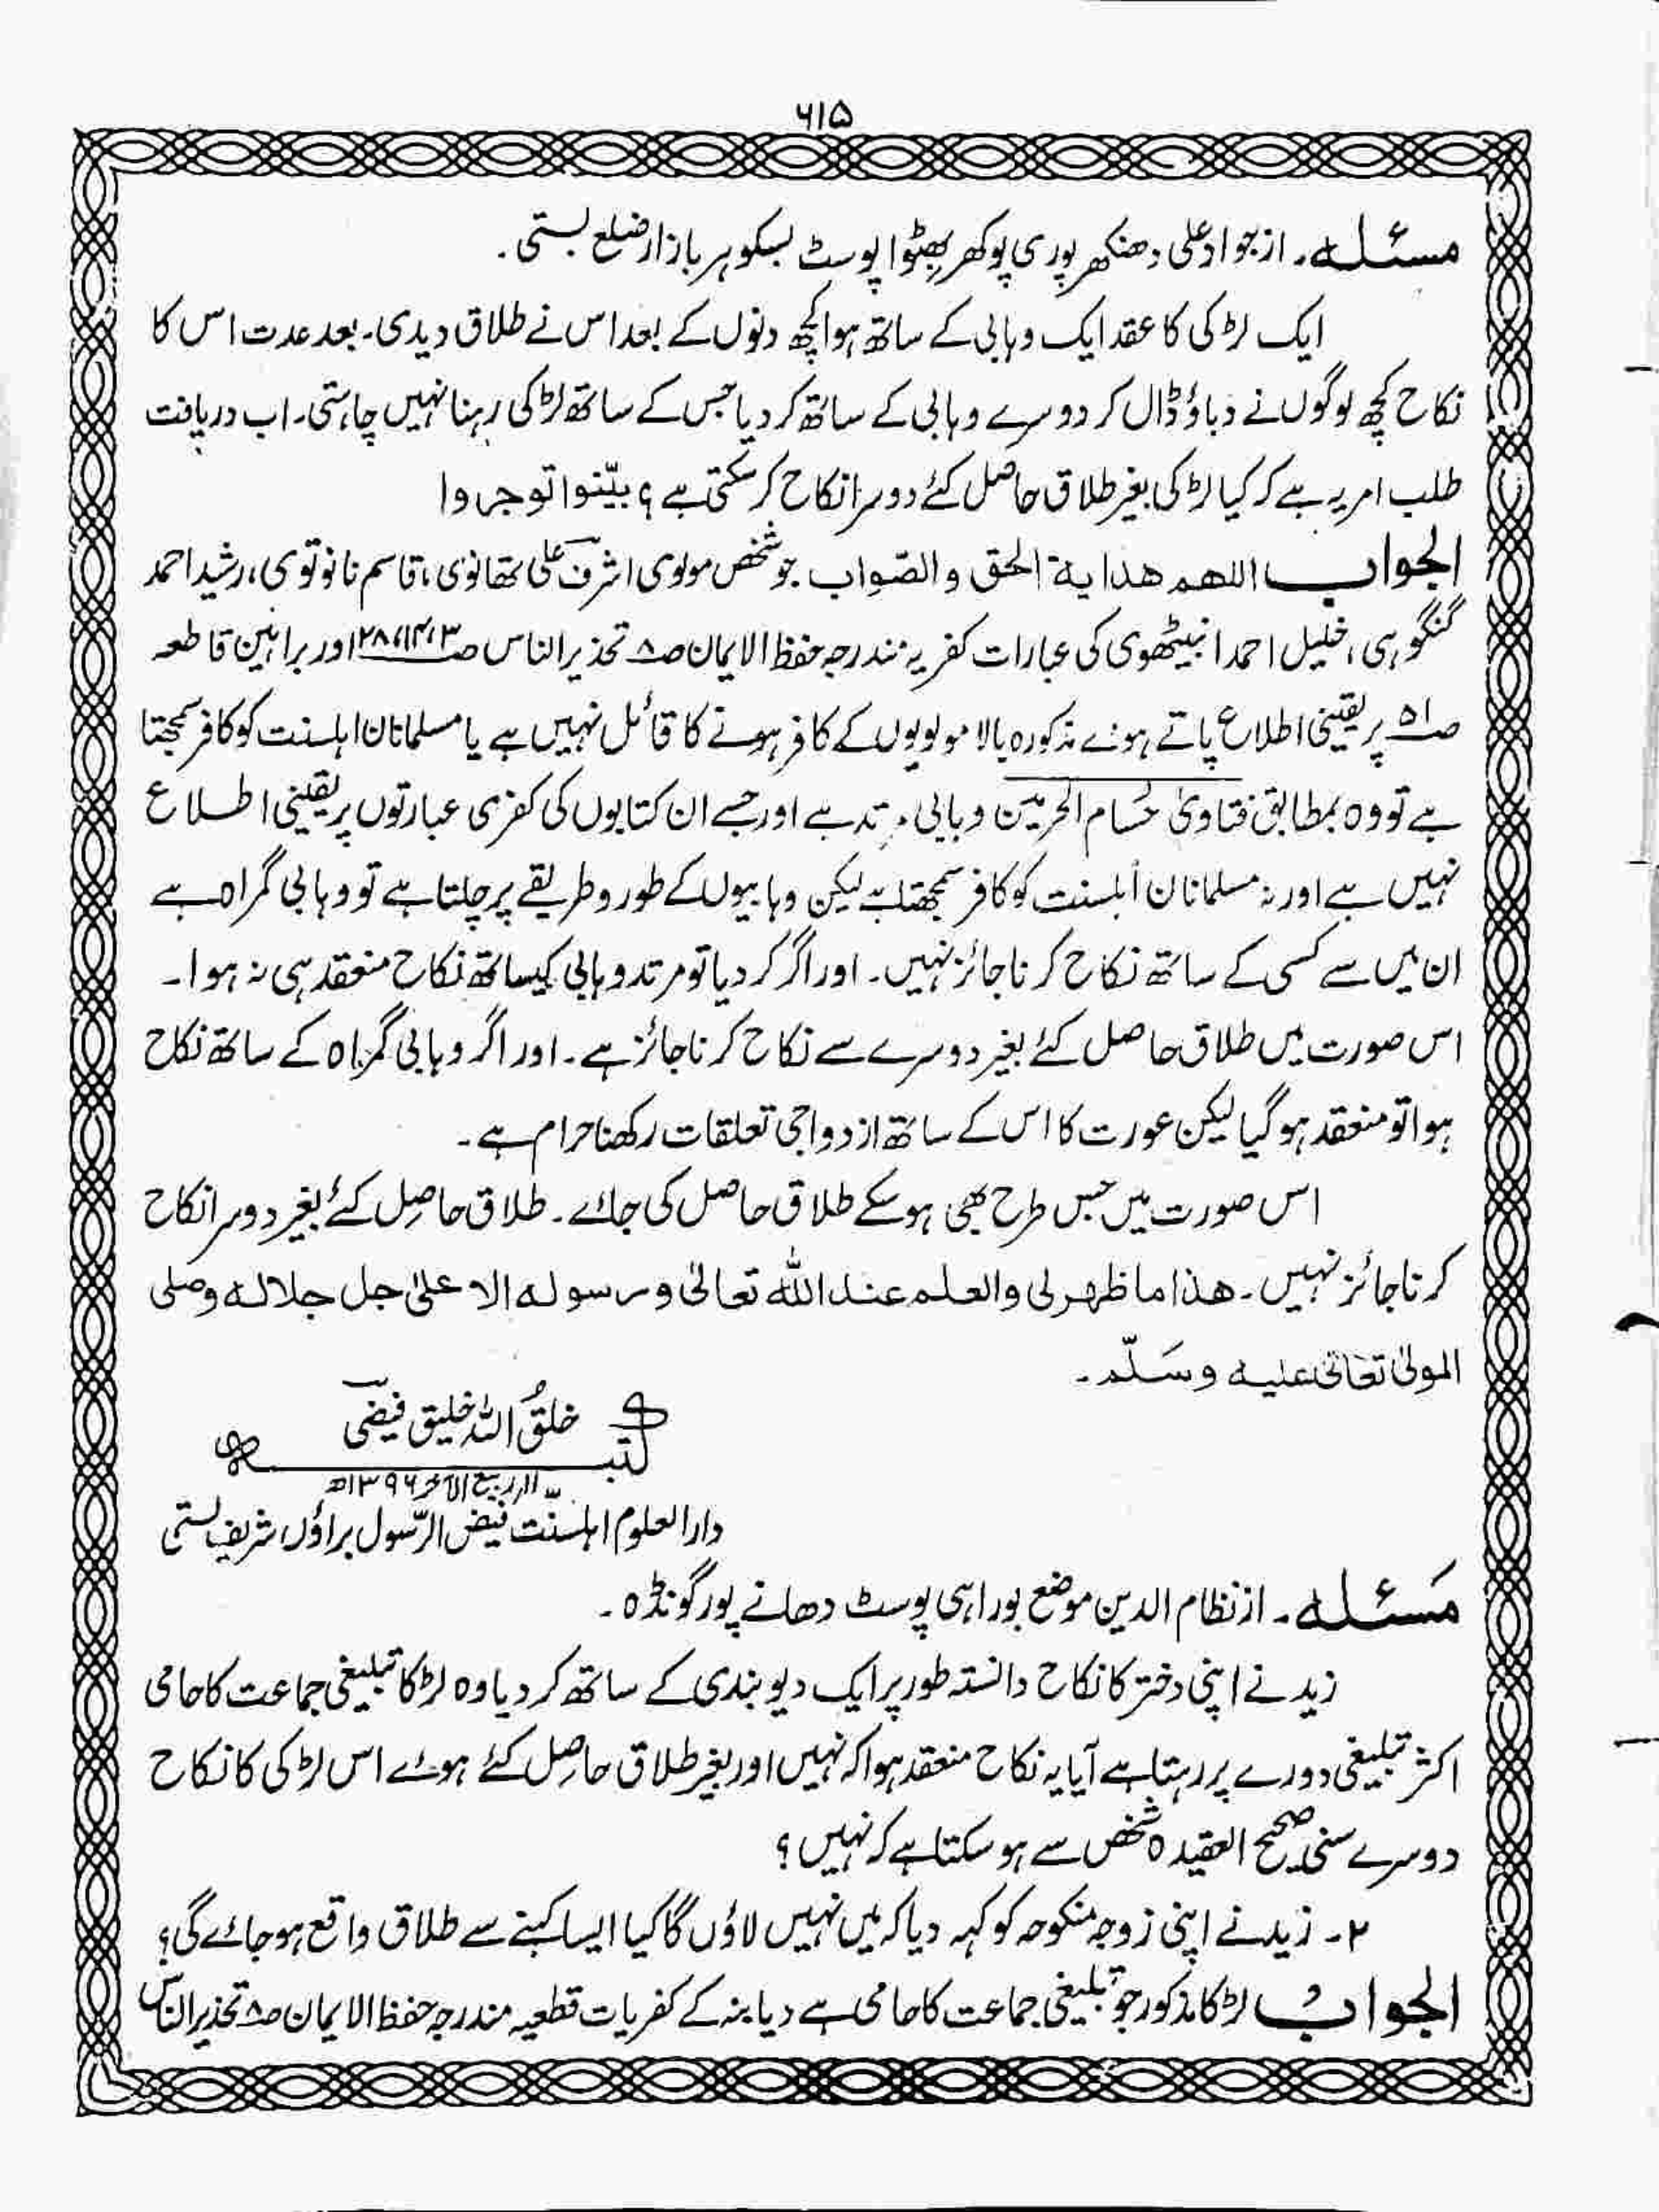 ۶۱۵
مسئلہ۔ از جواد علی دھنکھر پوری پوکھر بھٹوا پوسٹ بسکوہر بازار ضلع بستی۔
ایک لڑکی کا عقد ایک وہابی کے ساتھ ہوا کچھ دنوں کے بعد اس نے طلاق دیدی۔ بعد عدت اس کا
نکاح کچھ لوگوں نے دباؤ ڈال کر دوسرے وہابی کے ساتھ کر دیا جس کے ساتھ لڑکی رہنا نہیں چاہتی۔ اب دریافت
طلب امر یہ ہے کہ کیا لڑکی بغیر طلاق حاصل کئے دوسرا نکاح کر سکتی ہے؟ بیّنوا توجروا
الجواب اللھم ھدایۃ الحق والصّواب جو شخص مولوی اشرف علی تھانوی، قاسم نانوتوی، رشید احمد
گنگوہی، خلیل احمد انبیٹھوی کی عبارات کفریہ مندرجہ حفظ الایمان صـ۸ تحذیر الناس صـ۳،۱۴،۲۸ اور براہین قاطعہ
صـ۵۱ پر یقینی اطلاع پاتے ہوئے مذکورہ بالا مولویوں کے کافر ہونے کا قائل نہیں ہے یا مسلمانان اہلسنت کو کافر سمجھتا
ہے تو وہ بمطابق فتاویٰ حسام الحرمین وہابی مرتد ہے اور جسے ان کتابوں کی کفری عبارتوں پر یقینی اطلاع
نہیں ہے اور نہ مسلمانان اہلسنت کو کافر سمجھتا ہے لیکن وہابیوں کے طور و طریقے پر چلتا ہے تو وہابی گمراہ ہے
ان میں سے کسی کے ساتھ نکاح کرنا جائز نہیں۔ اور اگر کر دیا تو مرتد وہابی کیساتھ نکاح منعقد ہی نہ ہوا۔
اس صورت میں طلاق حاصل کئے بغیر دوسرے سے نکاح کرنا جائز ہے۔ اور اگر وہابی گمراہ کے ساتھ نکاح
ہوا تو منعقد ہو گیا لیکن عورت کا اس کے ساتھ ازدواجی تعلقات رکھنا حرام ہے۔
اس صورت میں جس طرح بھی ہو سکے طلاق حاصل کی جائے۔ طلاق حاصل کئے بغیر دوسرا نکاح
کرنا جائز نہیں۔ ھذا ما ظھر لی والعلم عند اللہ تعالیٰ ورسولہ الاعلیٰ جل جلالہ وصلی
المولیٰ تعالیٰ علیہ وسَلّم۔
کتبہ خلق اللہ خلیق فیضی
۱۱؍ ربیع الآخر ۱۳۹۶ھ
دارالعلوم اہلسنّت فیض الرّسول براؤں شریف بستی
مَسئلہ۔ از نظام الدین موضع بوراہی پوسٹ دھانے پور گونڈہ۔
زید نے اپنی دختر کا نکاح دانستہ طور پر ایک دیوبندی کے ساتھ کر دیا وہ لڑکا تبلیغی جماعت کا حامی
اکثر تبلیغی دورے پر رہتا ہے آیا یہ نکاح منعقد ہوا کہ نہیں اور بغیر طلاق حاصل کئے ہوئے اس لڑکی کا نکاح
دوسرے سنی صحیح العقیدہ شخص سے ہو سکتا ہے کہ نہیں؟
۲۔ زید نے اپنی زوجہ منکوحہ کو کہہ دیا کہ میں نہیں لاؤں گا کیا ایسا کہنے سے طلاق واقع ہو جائے گی؟
الجوابُ لڑکا مذکور جو تبلیغی جماعت کا حامی ہے دیابنہ کے کفریات قطعیہ مندرجہ حفظ الایمان صـ۸ تحذیر الناس